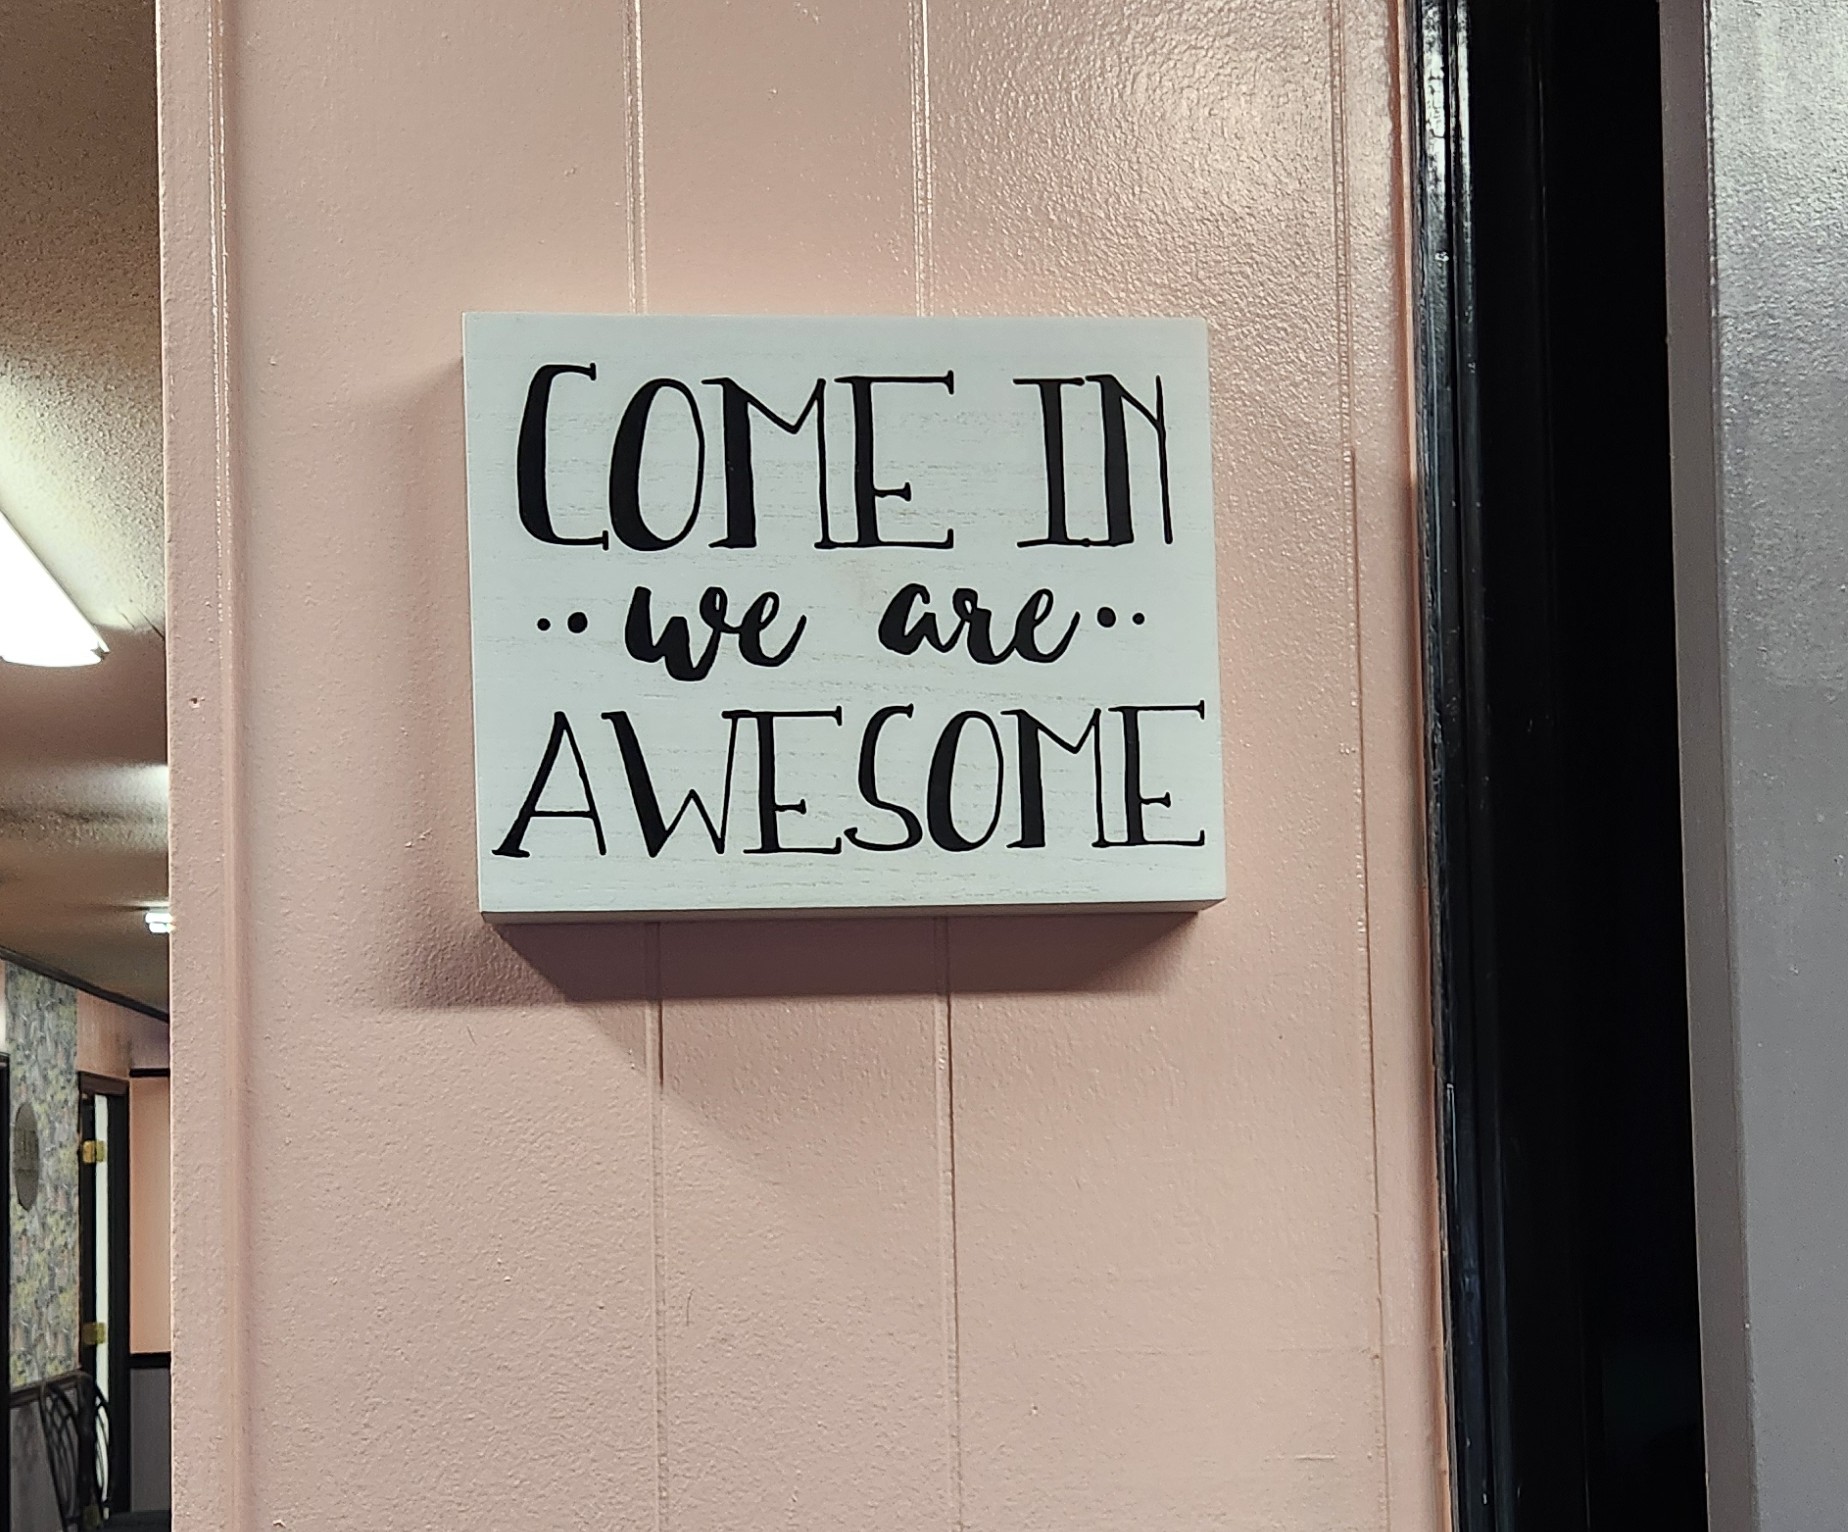 COME IN
..we are..
AWESOME